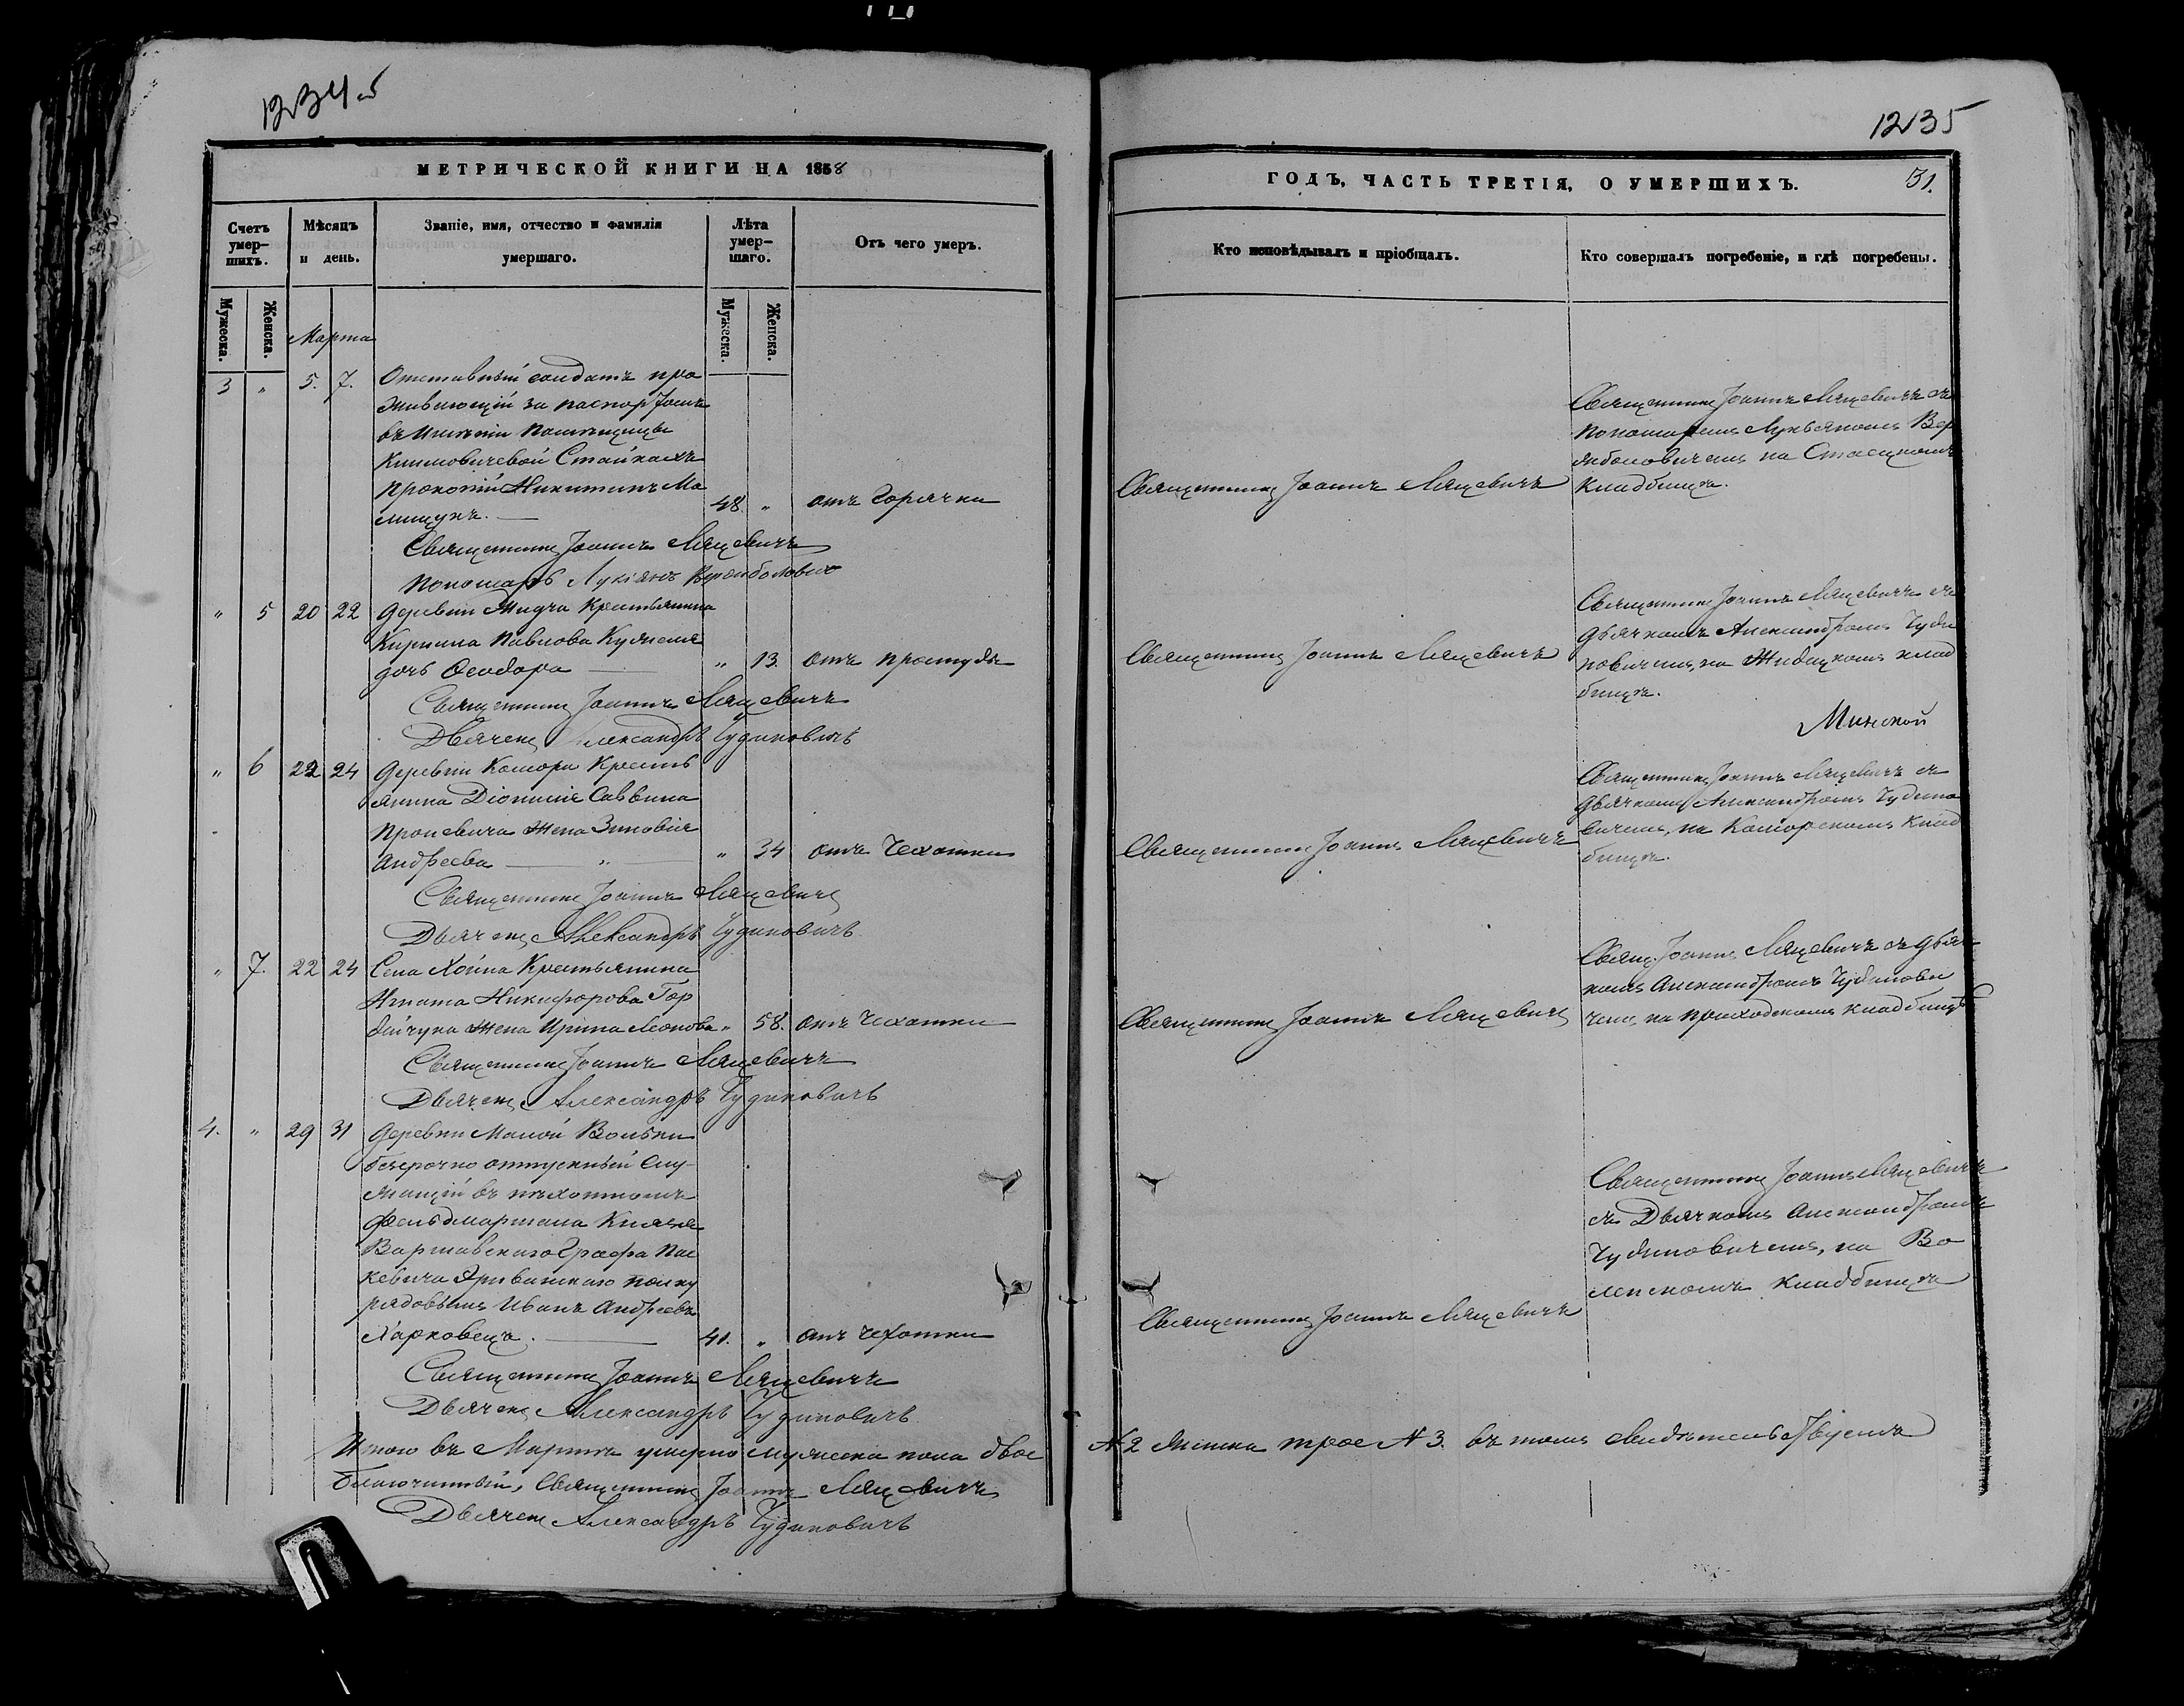 1234.5
МЕТРИЧЕСКОЙ КНИГИ НА 1858
Счетъ умер-шихъ.
Мѣсяцъ и день.
Званіе, имя, отчество и фамилія умершаго.
Лѣта умер-шаго.
Отъ чего умеръ.
Мужеска.
Женска.
Мужеска.
Женска.
Марта
3 " 5. 7. Отставный солдатъ про
живающій за паспортомъ
въ имѣніи помѣщицы
Климовичевой Стайкахъ
Прокопій Никитинъ Ма
лищукъ. — 48. " отъ Горячки
Священникъ Іоаннъ Ляцевичъ
Пономарь Лукіянъ
" 5 20 22 Деревни Жидча Крестьянина
Кирилла Павлова
дочь Ѳеодора — " 13. отъ простуды
Священникъ Іоаннъ Ляцевичъ
Дьячекъ Александръ Чудиновичъ
" 6 22 24 Деревни Комори Кресть
янина Діонисія Саввина
жена Зиновія
Андреева — " — " 34 отъ Чехотки
Священникъ Іоаннъ Ляцевичъ
Дьячекъ Александръ Чудиновичъ
" 7. 22 24 Села Хойна Крестьянина
Игната Никифорова Гор
дайчука жена Ирина Леонова " 58. отъ Чехотки
Священникъ Іоаннъ Ляцевичъ
Дьячекъ Александръ Чудиновичъ
4. " 29 31 Деревни Малой Вольки
безсрочно отпускный слу-
жащій въ пѣхотномъ
фельдмаршала Князя
Варшавскаго Графа Пас
кевича Эриванскаго полку
рядовымъ Иванъ Андреевъ
Харковецъ. — 41. " отъ чехотки
Священникъ Іоаннъ Ляцевичъ
Дьячекъ Александръ Чудиновичъ
Итого въ Мартѣ умерло мужеска пола двое
Благочинный, Священникъ Іоаннъ Ляцевичъ
Дьячекъ Александръ Чудиновичъ
1235
ГОДЪ, ЧАСТЬ ТРЕТІЯ, О УМЕРШИХЪ.
31.
Кто исповѣдывалъ и пріобщалъ.
Кто совершалъ погребеніе, и гдѣ погребены.
Священникъ Іоаннъ Ляцевичъ
Священникъ Іоаннъ Ляцевичъ съ
Пономаремъ Лукьяномъ
на Стаецкомъ
Кладбищѣ.
Священникъ Іоаннъ Ляцевичъ
Священникъ Іоаннъ Ляцевичъ съ
дьячкомъ Александромъ Чуди
новичемъ, на Жидецкомъ клад
бищѣ.
Минской
Священникъ Іоаннъ Ляцевичъ
Священникъ Іоаннъ Ляцевичъ съ
дьячкомъ Александромъ Чудино
вичемъ, на Коморскомъ Клад
бищѣ.
Священникъ Іоаннъ Ляцевичъ
Свящ. Іоаннъ Ляцевичъ съ дьяч-
комъ Александромъ Чудинови
чемъ, на приходскомъ кладбищѣ
Священникъ Іоаннъ Ляцевичъ
Священникъ Іоаннъ Ляцевичъ
съ Дьячкомъ Александромъ
Чудиновичемъ, на Во
ленскомъ Кладбищѣ
№ 2 женска трое № 3. въ томъ свидѣтельствуемъ